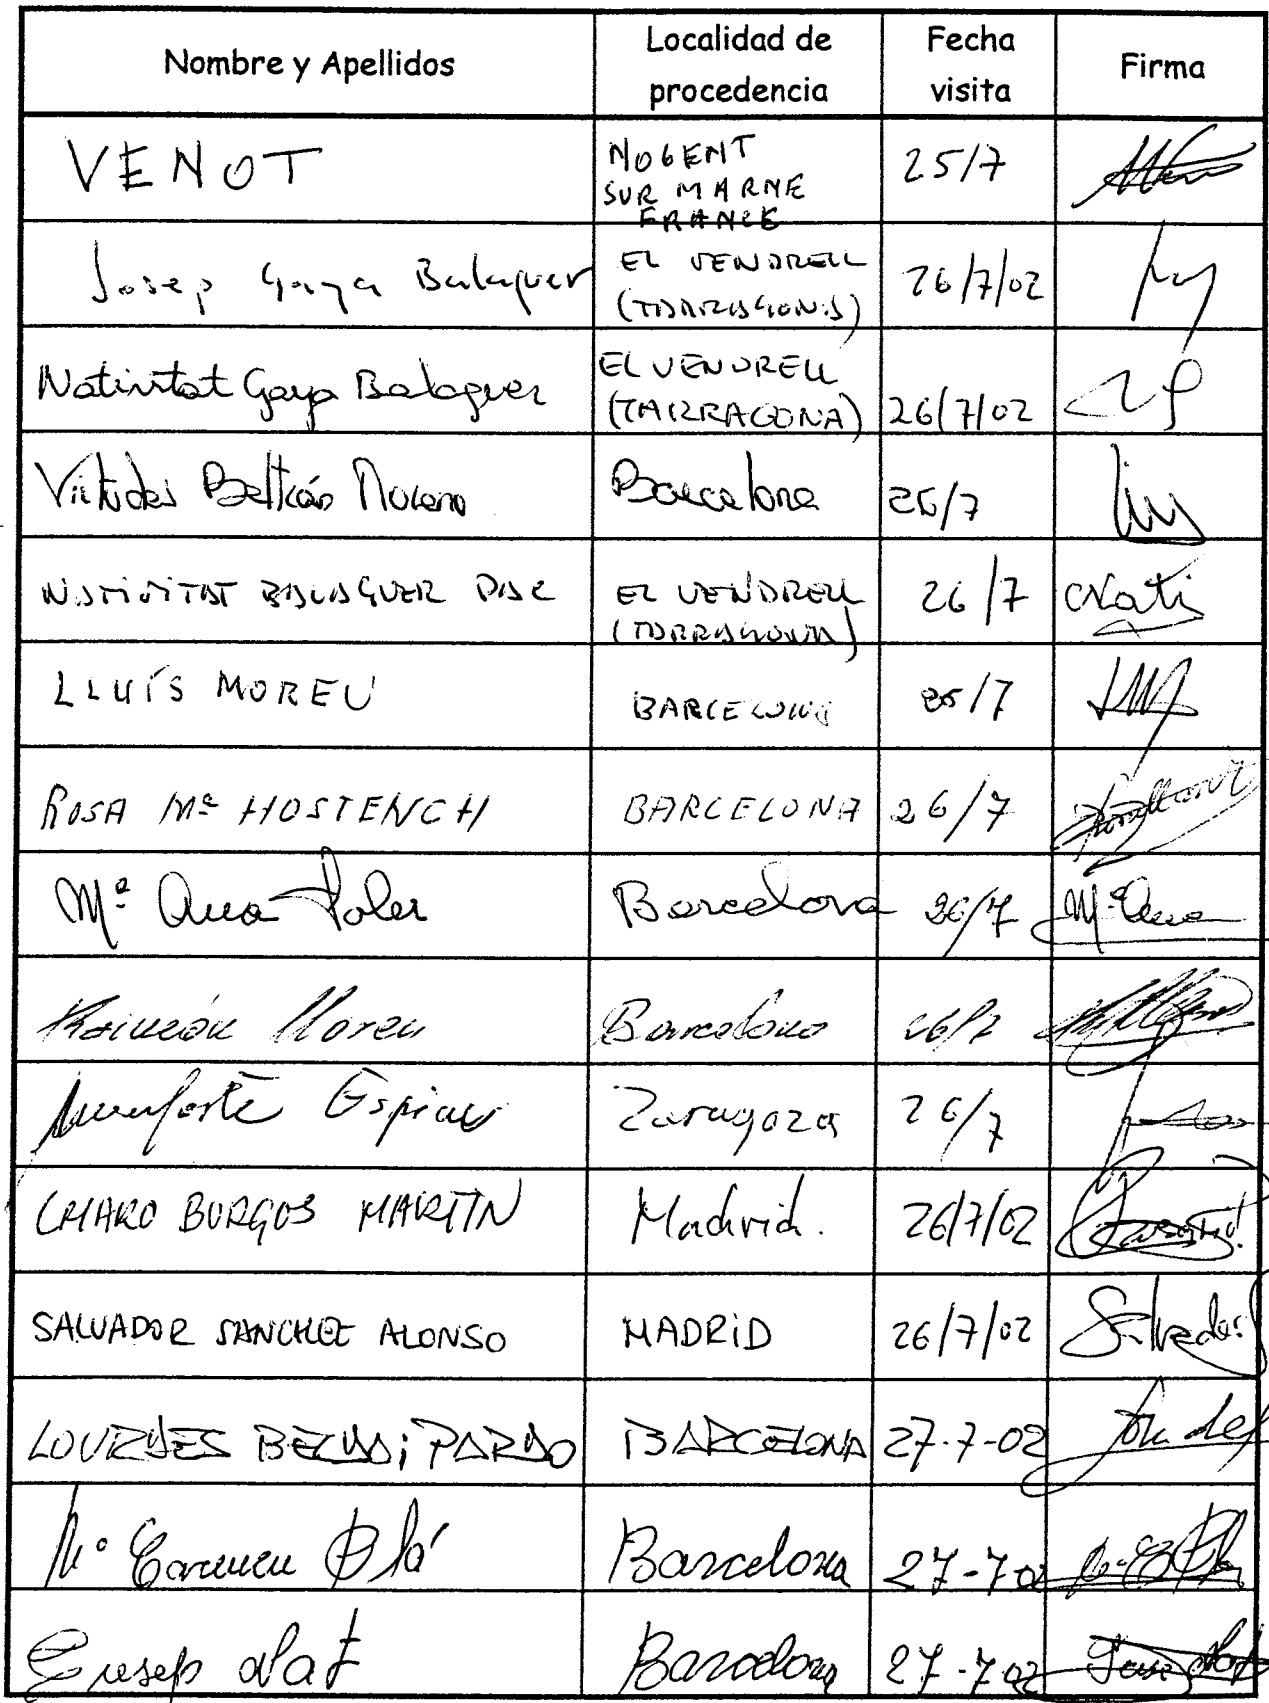 Nombre y Apellidos
Localidad de procedencia
Fecha visita
Firma
VENOT
NOGENT
SUR MARNE
FRANCE
25/7
Josep Gaya Balaguer
EL VENDRELL
(TARRAGONA)
26/7/02
Nativitat Gaya Balaguer
EL VENDRELL
(TARRAGONA)
26/7/02
Virtudes Beltrán Moreno
Barcelona
26/7
NATIVITAT BALAGUER
EL VENDRELL
(TARRAGONA)
26/7
Nati
LLUÍS MOREU
BARCELONA
26/7
ROSA Mª HOSTENCH
BARCELONA
26/7
Mª Ana Soler
Barcelona
26/7
Mª Ana
Ramón Moreu
Barcelona
26/7
Zaragoza
26/7
CHARO BURGOS MARTIN
Madrid.
26/7/02
SALVADOR SANCHEZ ALONSO
MADRID
26/7/02
Salvador
LOURDES PARDO
BARCELONA
27-7-02
Mª Carmen Plá
Barcelona
27-7-02
Barcelona
27-7-02